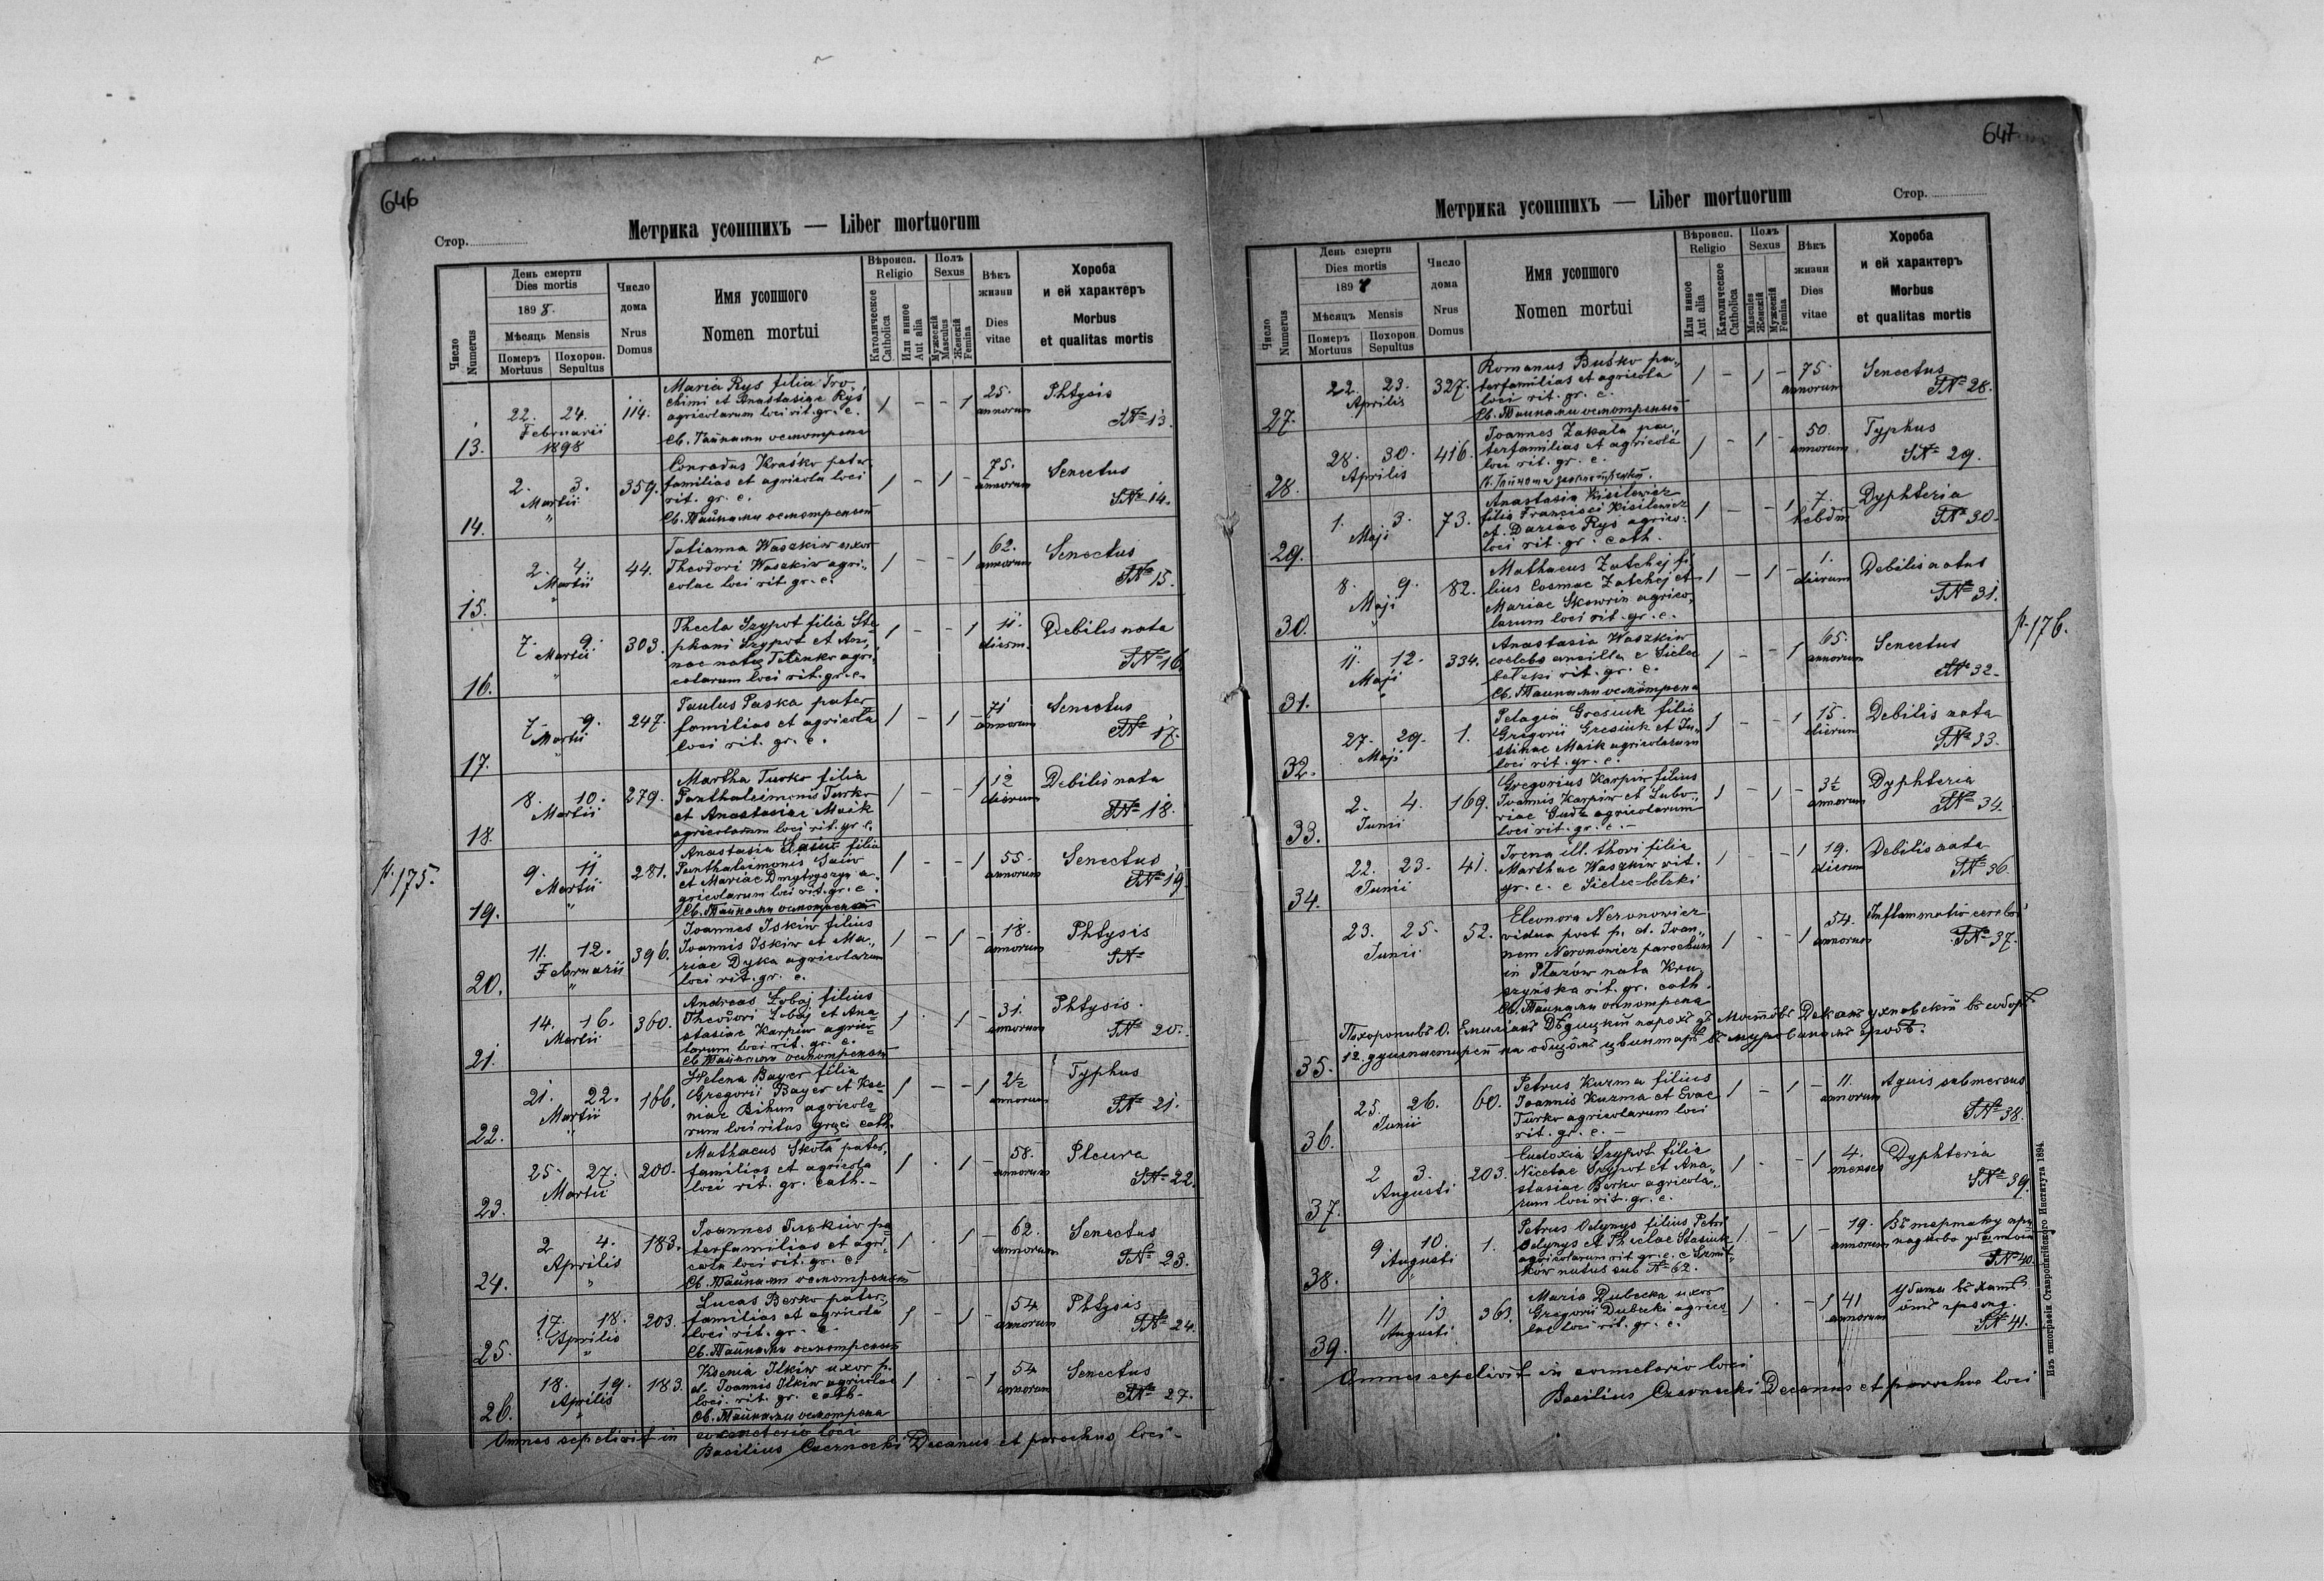 646
Стор.
Метрика усопшихъ — Liber mortuorum
Число Numerus
День смерти Dies mortis
1898.
Мѣсяць Mensis
Померъ Mortuus
Похорон. Sepultus
Число дома Nrus Domus
Имя усопшого Nomen mortui
Вѣроисп. Religio
Католическое Catholica
Или инное Aut alia
Полъ Sexus
Мужескій Masculus
Женскій Femina
Вѣкъ жизни Dies vitae
Хороба и ей характеръ Morbus et qualitas mortis
13.
22. 24. Februarii 1898
114.
Maria Rys filia Tro-
chimi et Anastasiae Rys
agricolarum loci rit. gr. c.
Св. Тайнами осмотрена
1 - - 1
25. annorum
Phtysis
№ 13.
14.
2. 3. Martii "
359.
Conradus Kraśko pater-
familias et agricola loci
rit. gr. c.
Св. Тайнами осмотреный
1 - 1 -
75. annorum
Senectus
№ 14.
15.
2. 4. Martii "
44.
Tatianna Waszkiw uxor
Theodori Waszkiw agri-
colae loci rit. gr. c.
1 - - 1
62. annorum
Senectus
№ 15.
16.
7. 9. Martii "
303.
Thecla Szypot filia Ste-
phani Szypot et An-
nae natae Telenko agri-
colarum loci rit. gr. c.
1 - - 1
11. dierum
Debilis nata
№ 16
17.
7. 9. Martii "
247.
Paulus Paska pater-
familias et agricola
loci rit. gr. c.
1 - 1 -
71 annorum
Senectus
№ 17.
18.
8. 10. Martii
279.
Martha Turko filia
Panthaleimonis Turko
et Anastasiae Maik
agricolarum loci rit. gr. c.
1 - - 1
12 dierum
Debilis nata
№ 18.
p. 175.
19.
9. 11 Martii "
281.
Anastasia filia
Panthaleimonis
et Mariae Dmytryszyn a-
gricolarum loci rit. gr. c.
Св. Тайнами осмотреный
1 - - 1
55. annorum
Senectus
№ 19.
20.
11. 12. Februarii "
396.
Joannes Iskiw filius
Joannis Iskiw et Ma-
riae Dyka agricolarum
loci rit. gr. c.
1 - 1 -
18. annorum
Phtysis
№
21.
14. 16. Martii
360.
Andreas filius
Theodori et Ana-
stasiae Karpiw agrico-
larum loci rit. gr. c.
Св. Тайнами осмотреный
1 . 1 -
31. annorum
Phtysis.
№ 20.
22.
21. 22. Martii "
166.
Helena Bayer filia
Gregorii Bayer et Xe-
niae Bihun agricola-
rum loci ritus graeci cath.
1 - - 1
2½ annorum
Typhus
№ 21.
23.
25. 27. Martii
200.
Mathaeus Skota pater-
familias et agricola
loci rit. gr. cath. -
1 . 1 -
58. annorum
Pleura
№ 22.
24.
2 4. Aprilis "
183.
Joannes pa-
terfamilias et agri-
cola loci rit. gr. c.
Св. Тайнами осмотреный
1 . 1 -
62. annorum
Senectus
№ 23.
25.
17. 18. Aprilis "
203.
Lucas Berko pater-
familias et agricola
loci rit. gr. c.
Св. Тайнами осмотреный
1 - 1 -
54 annorum
Phtysis
№ 24.
26.
18. 19. Aprilis "
183.
Ksenia Ilkiw uxor p.
d. Joannis Ilkiw agricolae
loci rit. gr. cath.
Св. Тайнами осмотрена
1 . - 1
54 annorum
Senectus
№ 27.
Omnes sepelivit in coemeterio loci
Basilius Czernecki Decanus et parochus loci -
647
Стор.
Метрика усопшихъ — Liber mortuorum
Число Numerus
День смерти Dies mortis
1898
Мѣсяцъ Mensis
Померъ Mortuus
Похорон Sepultus
Число дома Nrus Domus
Имя усопшого Nomen mortui
Вѣроисп. Religio
Или инное Aut alia
Католическое Catholica
Полъ Sexus
Masculus Женскій
Мужескій Femina
Вѣкъ жизни Dies vitae
Хороба и ей характеръ Morbus et qualitas mortis
27.
22. 23. Aprilis
327.
Romanus Buśko pa-
terfamilias et agricola
loci rit. gr. c.
Св. Тайнами осмотреный
1 - 1 -
75. annorum
Senectus
№ 28.
28.
28. 30. Aprilis
416.
Joannes Zakala pa-
terfamilias et agricola
loci rit. gr. c.
1 - 1 -
50. annorum
Typhus
№ 29.
29.
1. 3. Maji
73.
Anastasia Kisilewicz
filia Francisci Kisilewicz
et Dariae Rys agrico-
loci rit. gr. cath.
1 - - 1
7. hebdm
Dyphteria
№ 30.
30.
8. 9. Maji "
82.
Mathaeus Zatchej fi-
lius Cosmae Zatchej et
Mariae Skowrin agrico-
larum loci rit. gr. c.
1 - 1 -
1. dierum
Debilis natus
№ 31.
p. 176.
31.
11. 12. Maji "
334.
Anastasia Waszkiw
coelebs ancilla e Sielec
bełzki rit. gr. c.
Св. Тайнами осмотрена
1 - - 1
65. annorum
Senectus
№ 32.
32.
27. 29. Maji
1.
Pelagia Gresiuk filia
Gregorii Gresiuk et Ju-
stinae Maik agricolarum
loci rit. gr. c.
1 - - 1
15. dierum
Debilis nata
№ 33.
33.
2. 4. Junii
169.
Gregorius Karpiw filius
Joannis Karpiw et Lubo-
riae Gudz agricolarum
loci rit. gr. c. -
1 - 1 -
3½ annorum
Dyphteria
№ 34.
34.
22. 23. Junii
41.
Irena ill. thori filia
Marthae Waszkiw rit.
gr. c. e Sielec-bełzki
1 - - 1
19. dierum
Debilis nata
№ 36
35.
23. 25. Junii
52.
Eleonora Neronowicz
vidua post p. d. Joan-
nem Neronowicz parochum
in Płazów nata Kru-
szyńska rit. gr. cath.
Св. Тайнами осмотрена
1 - - 1
54. annorum
Inflammatio cerebri
№ 37.
Похоронивъ О. Емиліанъ Дѣдицкій парохъ зъ Мостôвъ Деканъ Ухновскій въ соборѣ
12. душпастырей на общôмъ цвинтарѣ въ мурованомъ гробѣ.
36.
25. 26. Junii
60.
Petrus Kuzma filius
Joannis Kuzma et Evae
Turko agricolarum loci
rit. gr. c. -
1 - 1 -
11. annorum
Aquis submersus
№ 38.
37.
2 3. Augusti
203.
Eudoxia Szypot filia
Nicetae Szypot et Ana-
stasiae Berko agricola-
rum loci rit. gr. c.
1 - - 1
4. menses
Dyphteria
№ 39.
38.
9 10. Augusti "
1.
Petrus Odynys filius Petri
Odynys et Theclae Stasiuk
agricolarum rit. gr. c. e
natus sub № 62.
1 - 1 -
19. annorum
Въ тартаку
№ 40.
39.
11 13 Augusti
363.
Maria Dubecka uxor
Gregorii Dubecki agrico-
lae loci rit. gr. c.
1 . - 1
41 annorum
Убита въ хатѣ
№ 41.
Omnes sepelivit in coemeterio loci
Basilius Czernecki Decanus et parochus loci
Изъ типографіи Ставропигійского Института 1894.